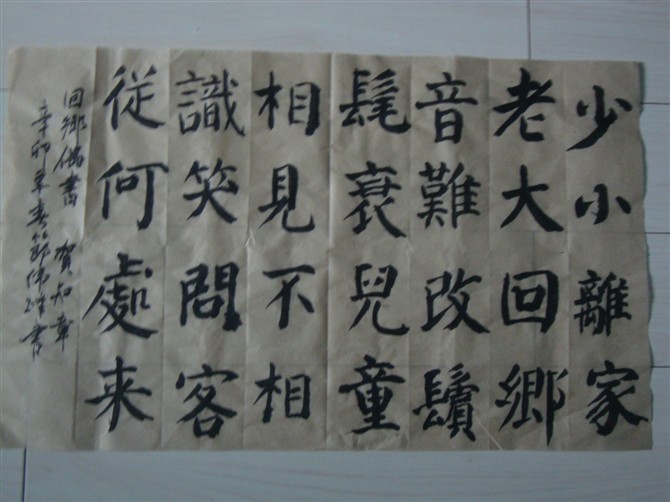 少小離家
老大回鄉
音難改鬢
髦衰兒童
相見不相
識笑問客
從何處来
回鄉偶書 賀知章
辛卯年春節偉書